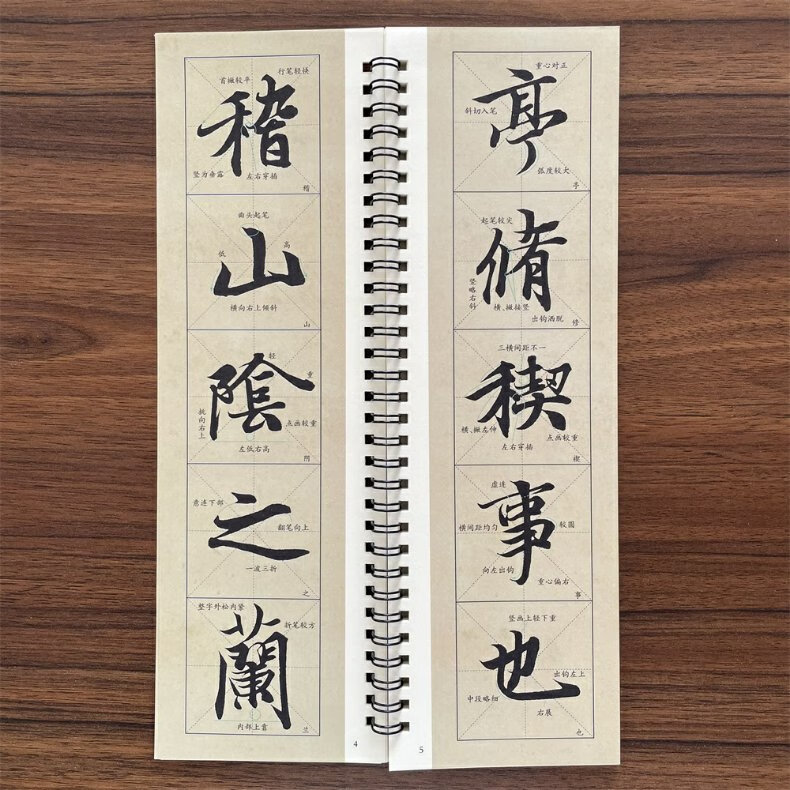 行笔轻快
首撇较平
稽
竖为垂露
左右穿插
稽
曲头起笔
高
低
山
横向右上倾斜
山
轻
重
陰
挑向右上
点画较重
左低右高
阴
意连下部
之
翻笔向上
一波三折
之
整字外松内紧
折笔较方
蘭
内部上靠
兰
4
重心对正
斜切入笔
亭
弧度较大
亭
起笔较尖
脩
竖略右斜
横、撇接竖
出钩洒脱
修
三横间距不一
稧
横、撇左伸
点画较重
左右穿插
禊
虚连
事
横间距均匀
较圆
向左出钩
重心偏右
事
竖画上轻下重
也
出钩左上
中段略细
右展
也
5